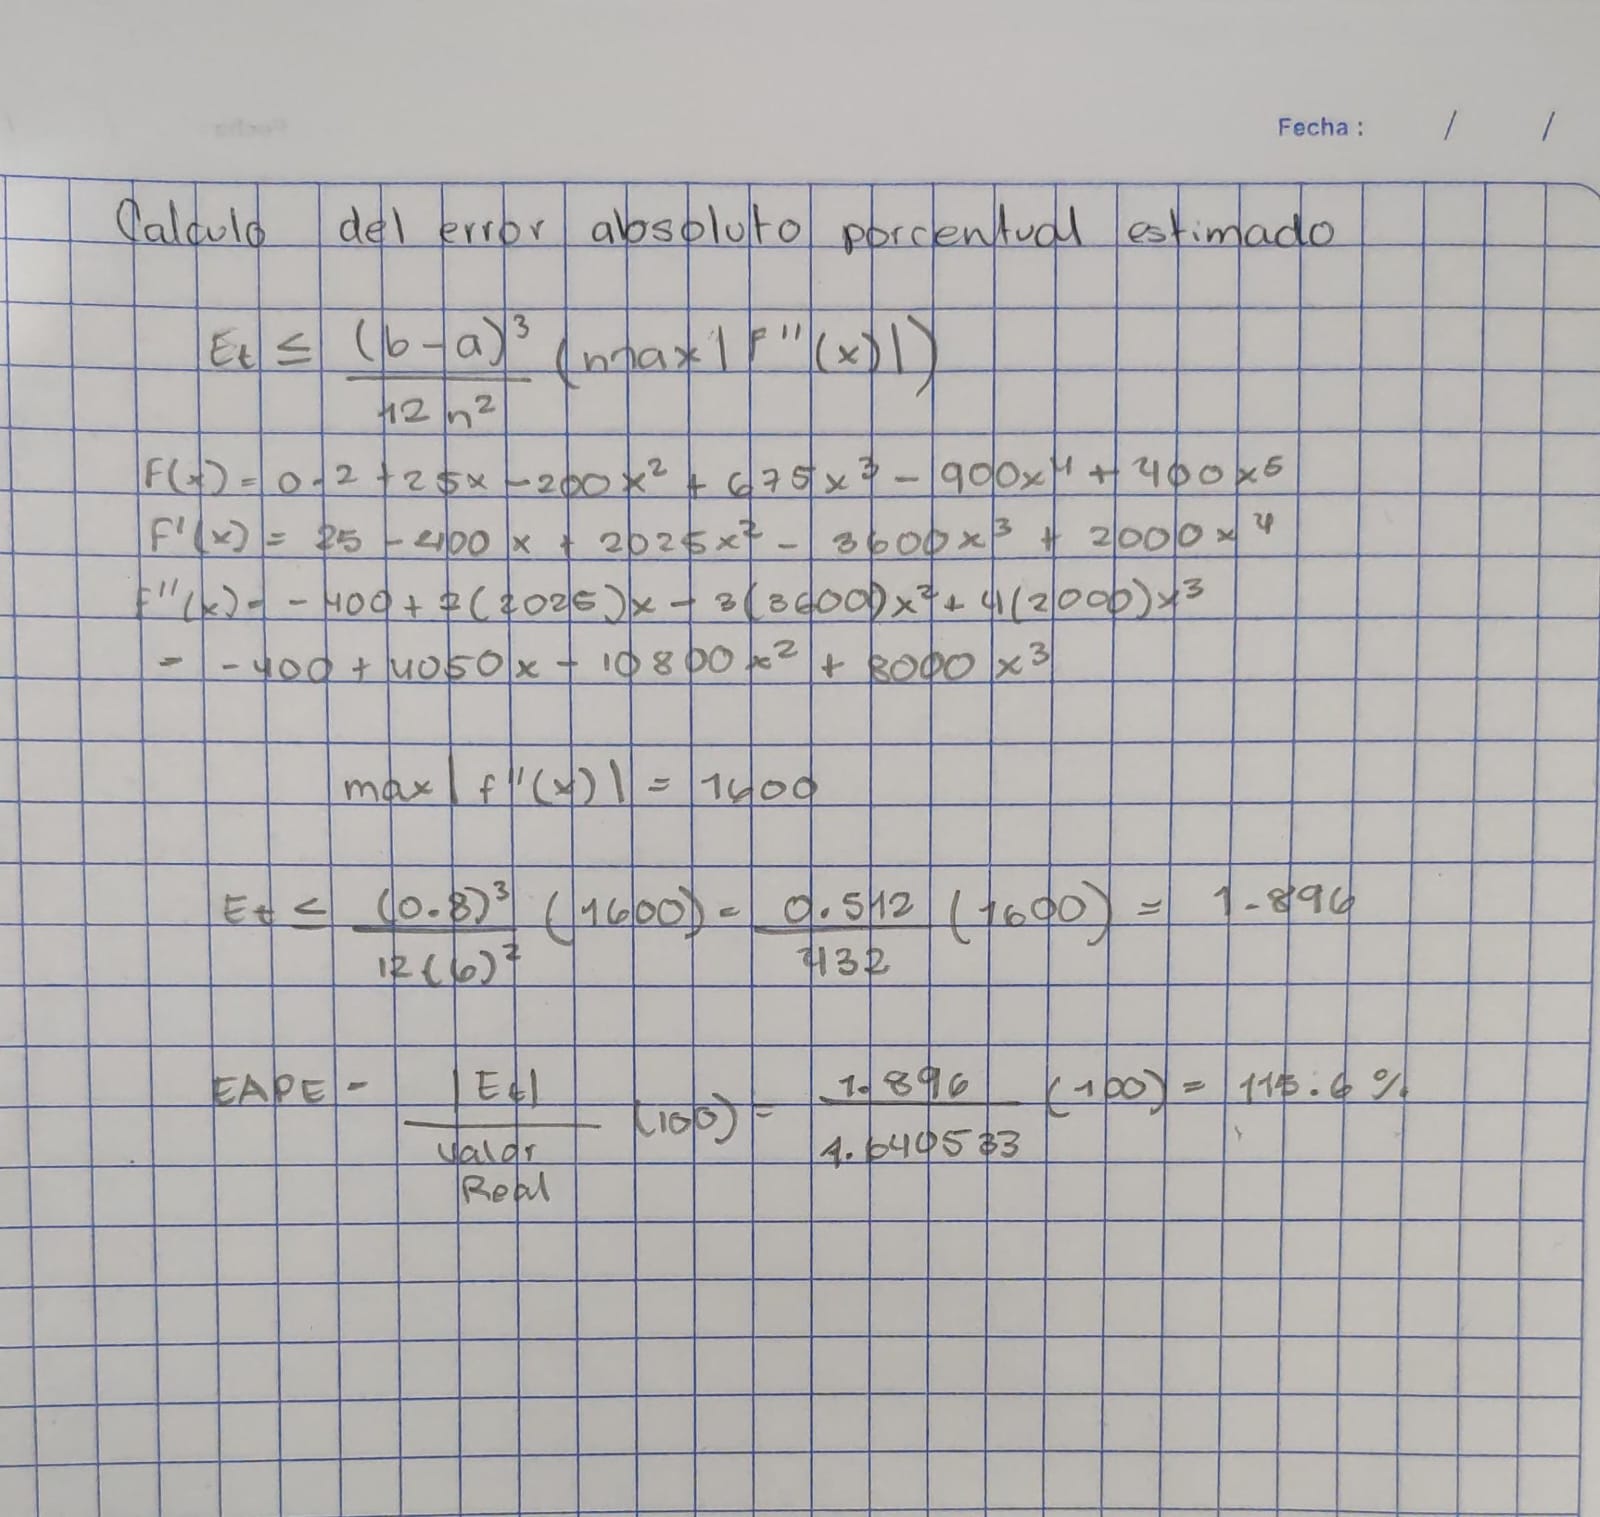 Fecha : / /
Calculo del error absoluto porcentual estimado
Et ≤ (b-a)³ / 12 n² (max | F''(x) |)
F(x) = 0.2 + 25x - 200x² + 675x³ - 900x⁴ + 400x⁵
F'(x) = 25 - 400x + 2025x² - 3600x³ + 2000x⁴
F''(x) = -400 + 2(2025)x - 3(3600)x² + 4(2000)x³
= -400 + 4050x - 10800x² + 8000x³
max | f''(x) | = 1600
Et ≤ (0.8)³ / 12(6)² (1600) = 0.512 / 432 (1600) = 1.896
EAPE = |Et| / Valor Real (100) = 1.896 / 1.640533 (100) = 115.6 %